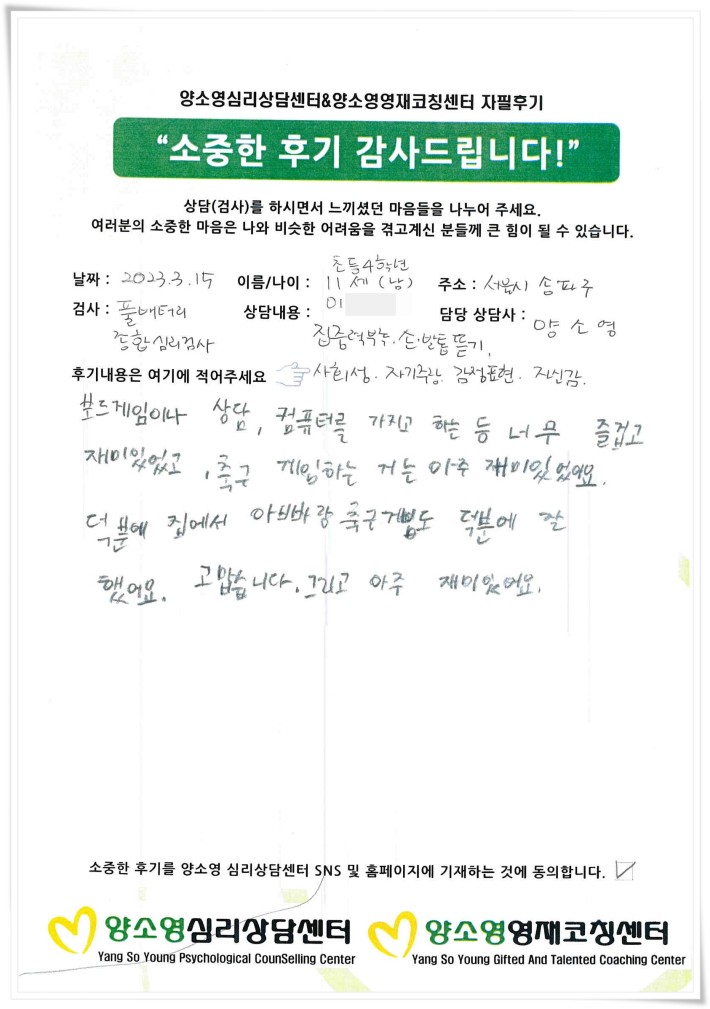 양소영심리상담센터&양소영영재코칭센터 자필후기
“소중한 후기 감사드립니다!”
상담(검사)를 하시면서 느끼셨던 마음들을 나누어 주세요.
여러분의 소중한 마음은 나와 비슷한 어려움을 겪고계신 분들께 큰 힘이 될 수 있습니다.
초등4학년
날짜 : 2023.3.15 이름/나이 : 11세 (남) 주소 : 서울시 송파구
검사 : 풀배터리 상담내용 : 01 담당 상담사 : 양소영
종합심리검사 집중력부족. 손·발톱뜯기.
후기내용은 여기에 적어주세요 사회성. 자기주장. 감정표현. 자신감.
보드게임이나 상담, 컴퓨터를 가지고 하는 등 너무 즐겁고
재미있었고, 축구 게임하는 거는 아주 재미있었어요.
덕분에 집에서 아빠랑 축구게임도 덕분에 잘
했어요. 고맙습니다. 그리고 아주 재미있어요.
소중한 후기를 양소영 심리상담센터 SNS 및 홈페이지에 기재하는 것에 동의합니다.
양소영심리상담센터 양소영영재코칭센터
Yang So Young Psychological CounSelling Center Yang So Young Gifted And Talented Coaching Center